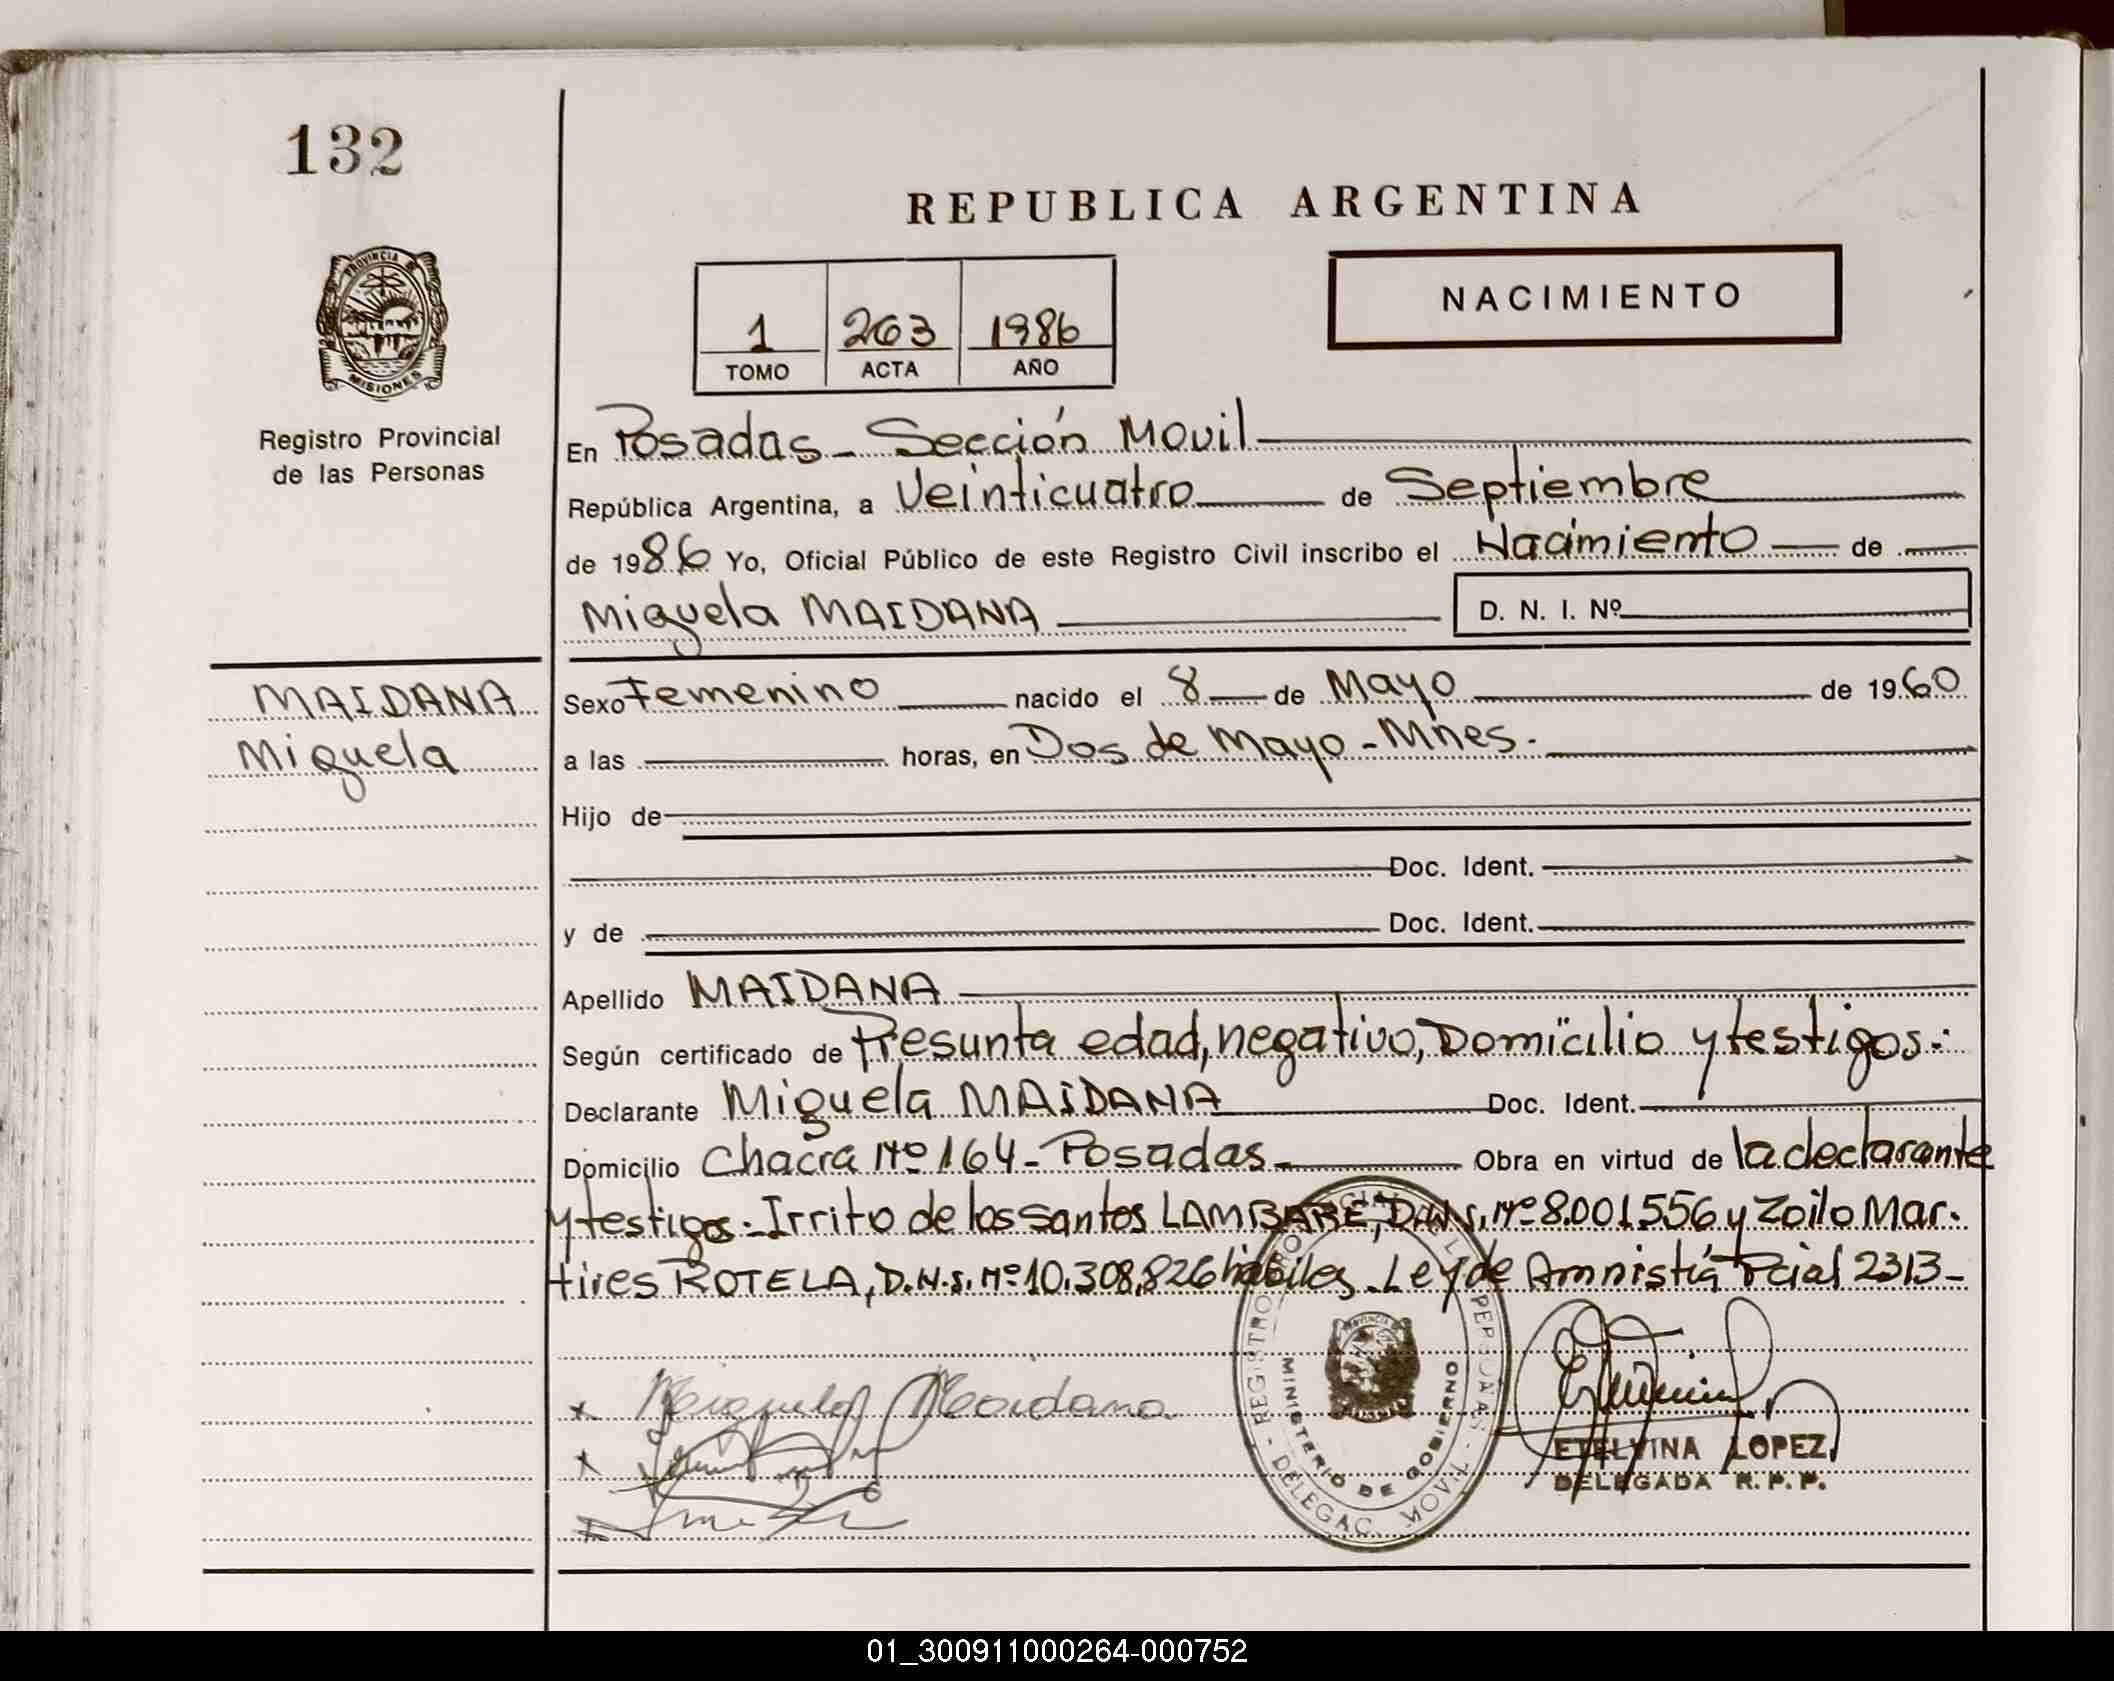 132
REPUBLICA ARGENTINA
NACIMIENTO
1 263 1986
TOMO ACTA AÑO
PROVINCIA DE
MISIONES
Registro Provincial
de las Personas
En Posadas - Sección Movil
República Argentina, a Veinticuatro de Septiembre
de 1986 Yo, Oficial Público de este Registro Civil inscribo el Nacimiento de
Miguela MAIDANA D. N. I. Nº
MAIDANA
Miguela
Sexo Femenino nacido el 8 de Mayo de 1960
a las horas, en Dos de Mayo - Mnes.
Hijo de
Doc. Ident.
y de Doc. Ident.
Apellido MAIDANA
Según certificado de Presunta edad, negativo, Domicilio y testigos.-
Declarante Miguela MAIDANA Doc. Ident.
Domicilio Chacra Nº 164 - Posadas - Obra en virtud de la declarante
y testigos.- Irrito de los santos LAMBARE, D.N.I. Nº 8.001.556 y Zoilo Mar-
tires ROTELA, D.N.I. Nº 10.308.826 habiles - Ley de Amnistía Pcial 2313 -
x Miguela Maidana
x
x
REGISTRO PROVINCIAL DE LAS PERSONAS - DELEGAC. MOVIL -
MINISTERIO DE GOBIERNO
ETELVINA LOPEZ
DELEGADA R. P. P.
01_300911000264-000752